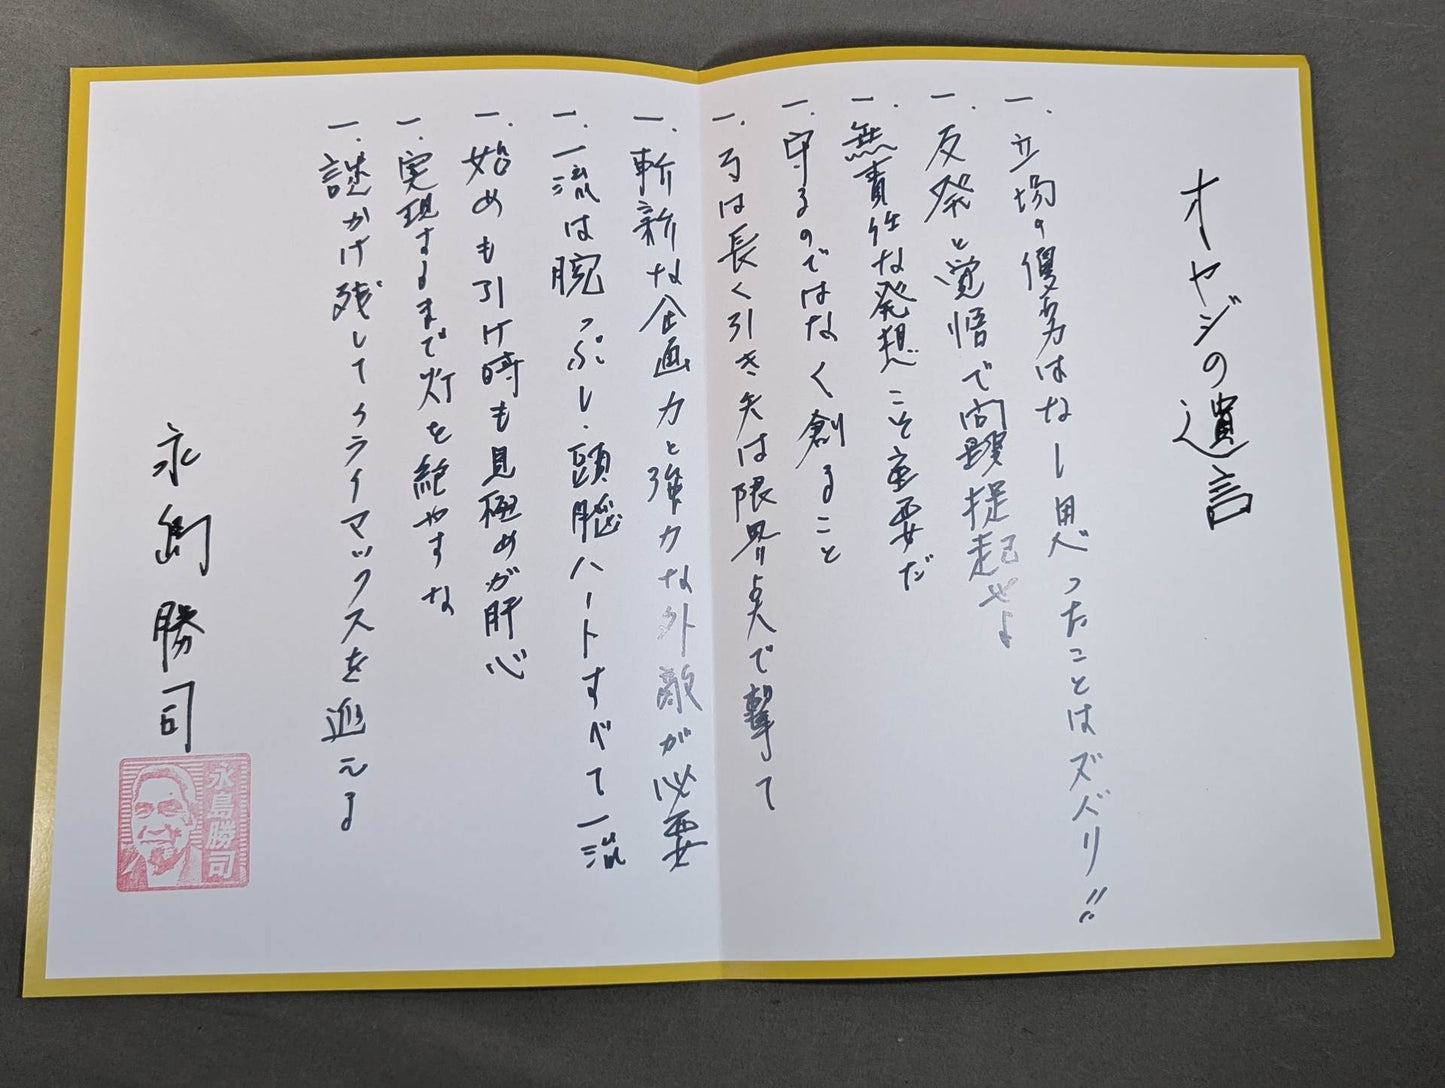 オヤジの遺言
一. 立場の優劣はなし思ったことはズバリ!!
一. 反発と覚悟で問題提起せよ
一. 無責任な発想こそ重要だ
一. 守るのではなく創ること
一. 弓は長く引き矢は限界点で撃て
一. 斬新な企画力と強力な外敵が必要
一. 一流は腕っぷし.頭脳ハートすべて一流
一. 始めも引け時も見極めが肝心
一. 実現するまで灯を絶やすな
一. 謎かけ残してクライマックスを迎える
永島勝司
永島勝司